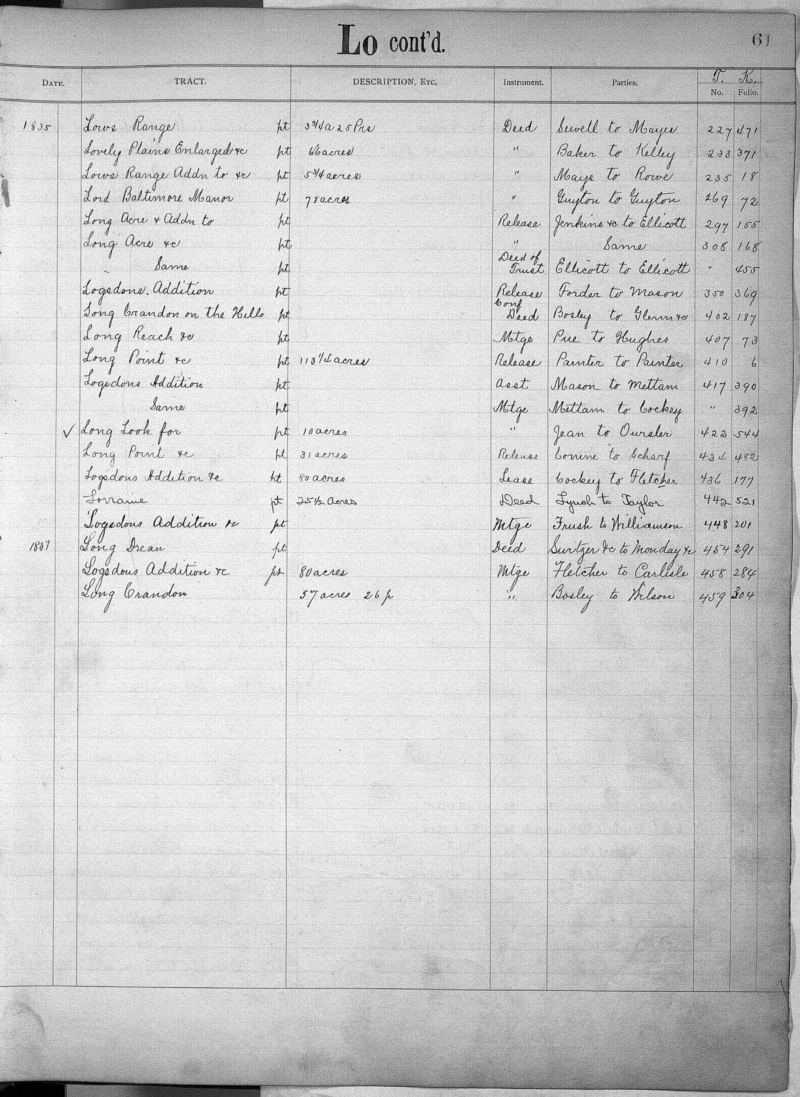 Lo cont'd.
61
DATE. TRACT. DESCRIPTION, ETC. Instrument. Parties. T. K.
No. Folio.
1835 Lows Range pt 3¾a 25 Prs Deed Sewell to Mayes 227 471
Lovely Plains Enlarged &c pt 46 acres " Baker to Kelley 233 371
Lows Range Addn to &c pt 5¾ acres " Mays to Rowe 235 18
Lord Baltimore Manor pt 78 acres " Guyton to Guyton 269 72
Long Acre & Addn to pt Release Jenkins &c to Ellicott 297 155
Long Acre &c pt " Same 308 168
" Same pt Deed of Trust Ellicott to Ellicott " 455
Logsdons Addition pt Release Forder to Mason 350 369
Long Crandon on the Hills pt Conf Deed Bosley to Glenn &c 402 187
Long Reach &c pt Mtge Pue to Hughes 407 73
Long Point &c pt 113¼ acres Release Painter to Painter 410 6
Logsdons Addition pt Asst Mason to Mettam 417 390
Same pt Mtge Mettam to Cockey " 392
✓ Long Look for pt 10 acres " Jean to Oursler 422 544
Long Point &c pt 31 acres Release Conine to Scharf 434 482
Logsdons Addition &c pt 80 acres Lease Cockey to Fletcher 436 177
Lorraine pt 25½ Acres Deed Lynch to Taylor 442 521
Logsdons Addition &c pt Mtge Frush to Williamson 448 201
Long Drean pt Deed to Monday &c 454 291
Logsdons Addition &c pt 80 acres Mtge Fletcher to Carlisle 458 284
Long Crandon 57 acres 26 p " Bosley to Wilson 459 304